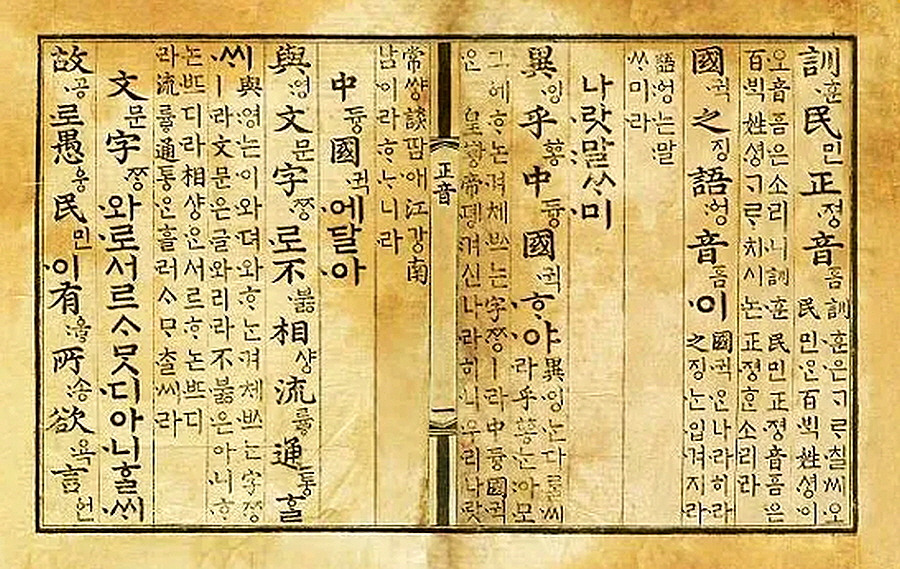 訓훈民민正졍音ᅙᅳᆷ
訓훈은ᄀᆞᄅᆞ칠씨오
民민ᄋᆞᆫ百ᄇᆡᆨ姓셩이
오音ᅙᅳᆷ은소리니訓훈民민正졍音ᅙᅳᆷ은
百ᄇᆡᆨ姓셩ᄀᆞᄅᆞ치시논正졍ᄒᆞᆫ소리라
國귁之징語ᅌᅥᆼ音ᅙᅳᆷ이
國귁ᄋᆞᆫ나라히라
之징ᄂᆞᆫ입겨지라
語ᅌᅥᆼ는말
ᄊᆞ미라
나랏말ᄊᆞ미
異잉乎ᅘᅩᆼ中듀ᇰ國귁ᄒᆞ야
異잉ᄂᆞᆫ다ᄅᆞᆯ씨
라乎ᅘᅩᆼᄂᆞᆫ아모
그ᅌᅦᄒᆞ논겨체ᄡᅳ는字ᄍᆞᆼㅣ라中듀ᇰ國귁
ᄋᆞᆫ皇ᅘᅪᇰ帝뎽겨신나라히니우리나랏
正音
一
常쌰ᇰ談땀애江가ᇰ南
남이라ᄒᆞᄂᆞ니라
中듀ᇰ國귁에달아
與영文문字ᄍᆞᆼ로不부ᇙ相샤ᇰ流류ᇢ通토ᇰᄒᆞᆯ
씨
與영는이와뎌와ᄒᆞ는겨체ᄡᅳ는字ᄍᆞᆼ
ㅣ라文문은글와리라不부ᇙ은아니ᄒᆞ
논ᄠᅳ디라相샤ᇰᄋᆞᆫ서르ᄒᆞ논ᄠᅳ디
라流류ᇢ通토ᇰᄋᆞᆫ흘러ᄉᆞᄆᆞᄎᆞᆯ씨라
文문字ᄍᆞᆼ와로서르ᄉᆞᄆᆞᆺ디아니ᄒᆞᆯ씨
故공로愚ᅌᅮᆼ民민이有ᅌᅮᇢ所송欲욕言언